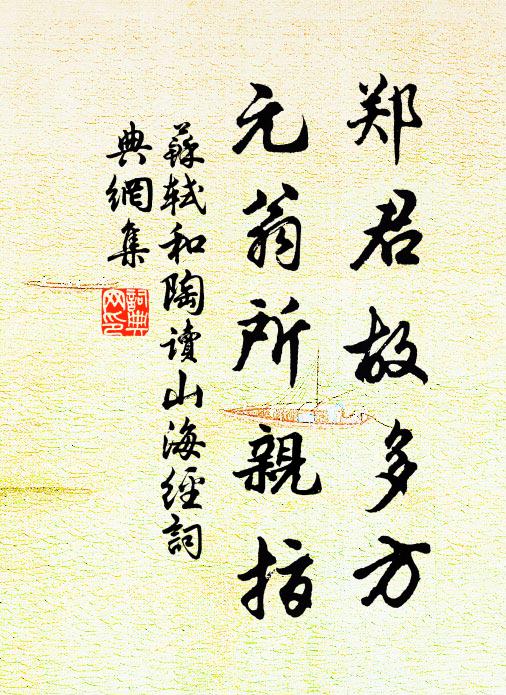 郑君故多方
元翁所親指
蘇軾和陶讀山海經詞
典網集
詞典
网印